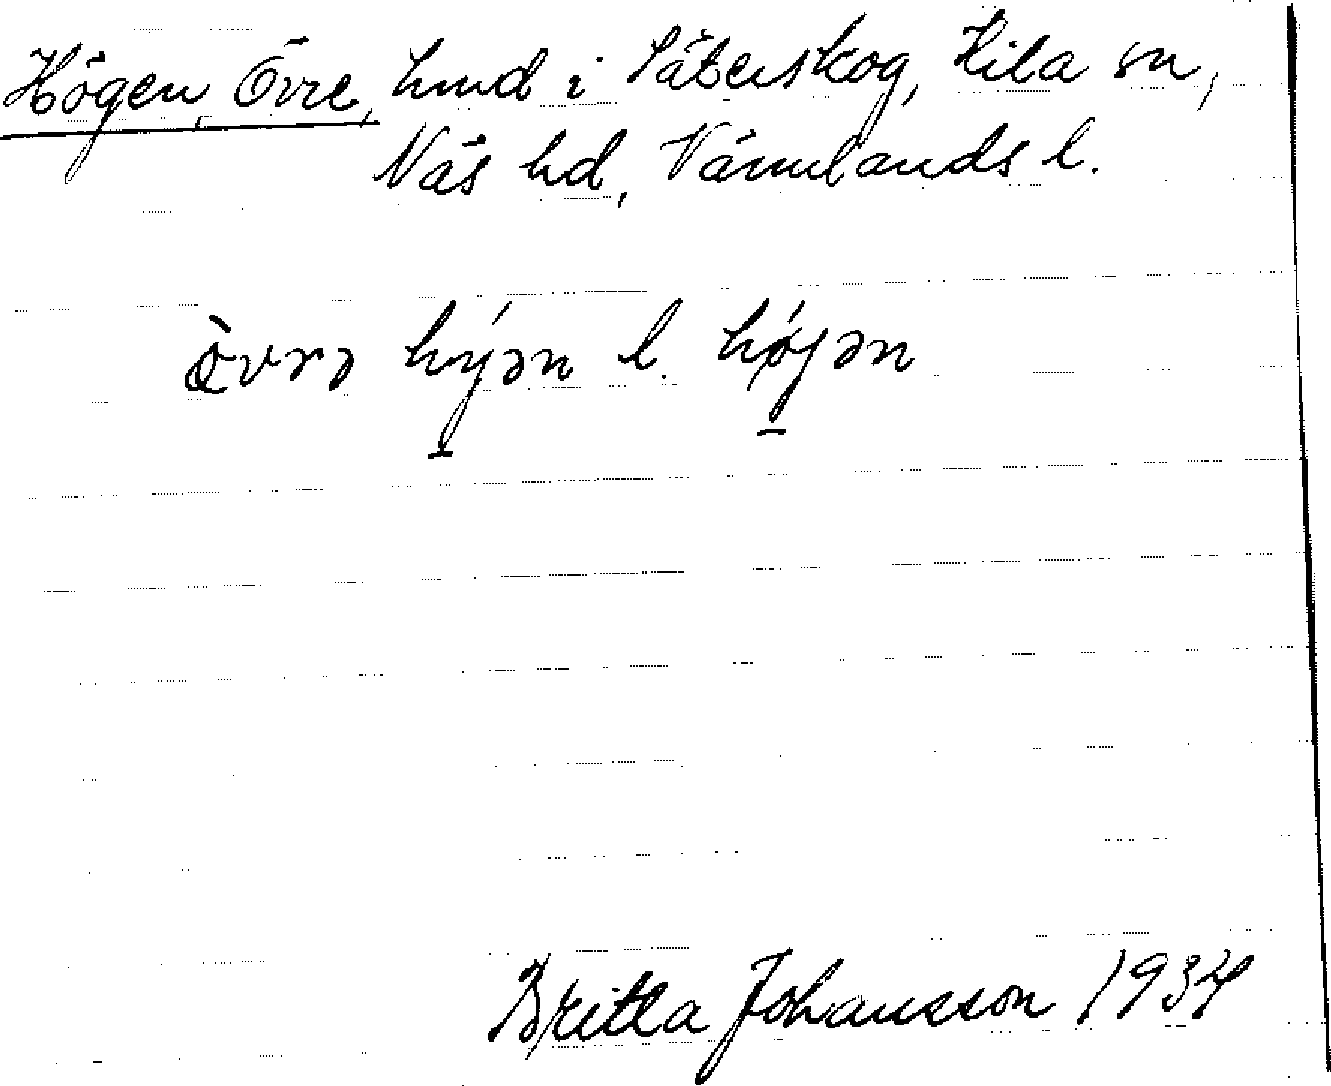 Högen, Övre, hmd i Säterskog, Kila sn,
Näs hd, Värmlands l.
ö̀vrə hýən l. hǿjən
Britta Johansson 1934